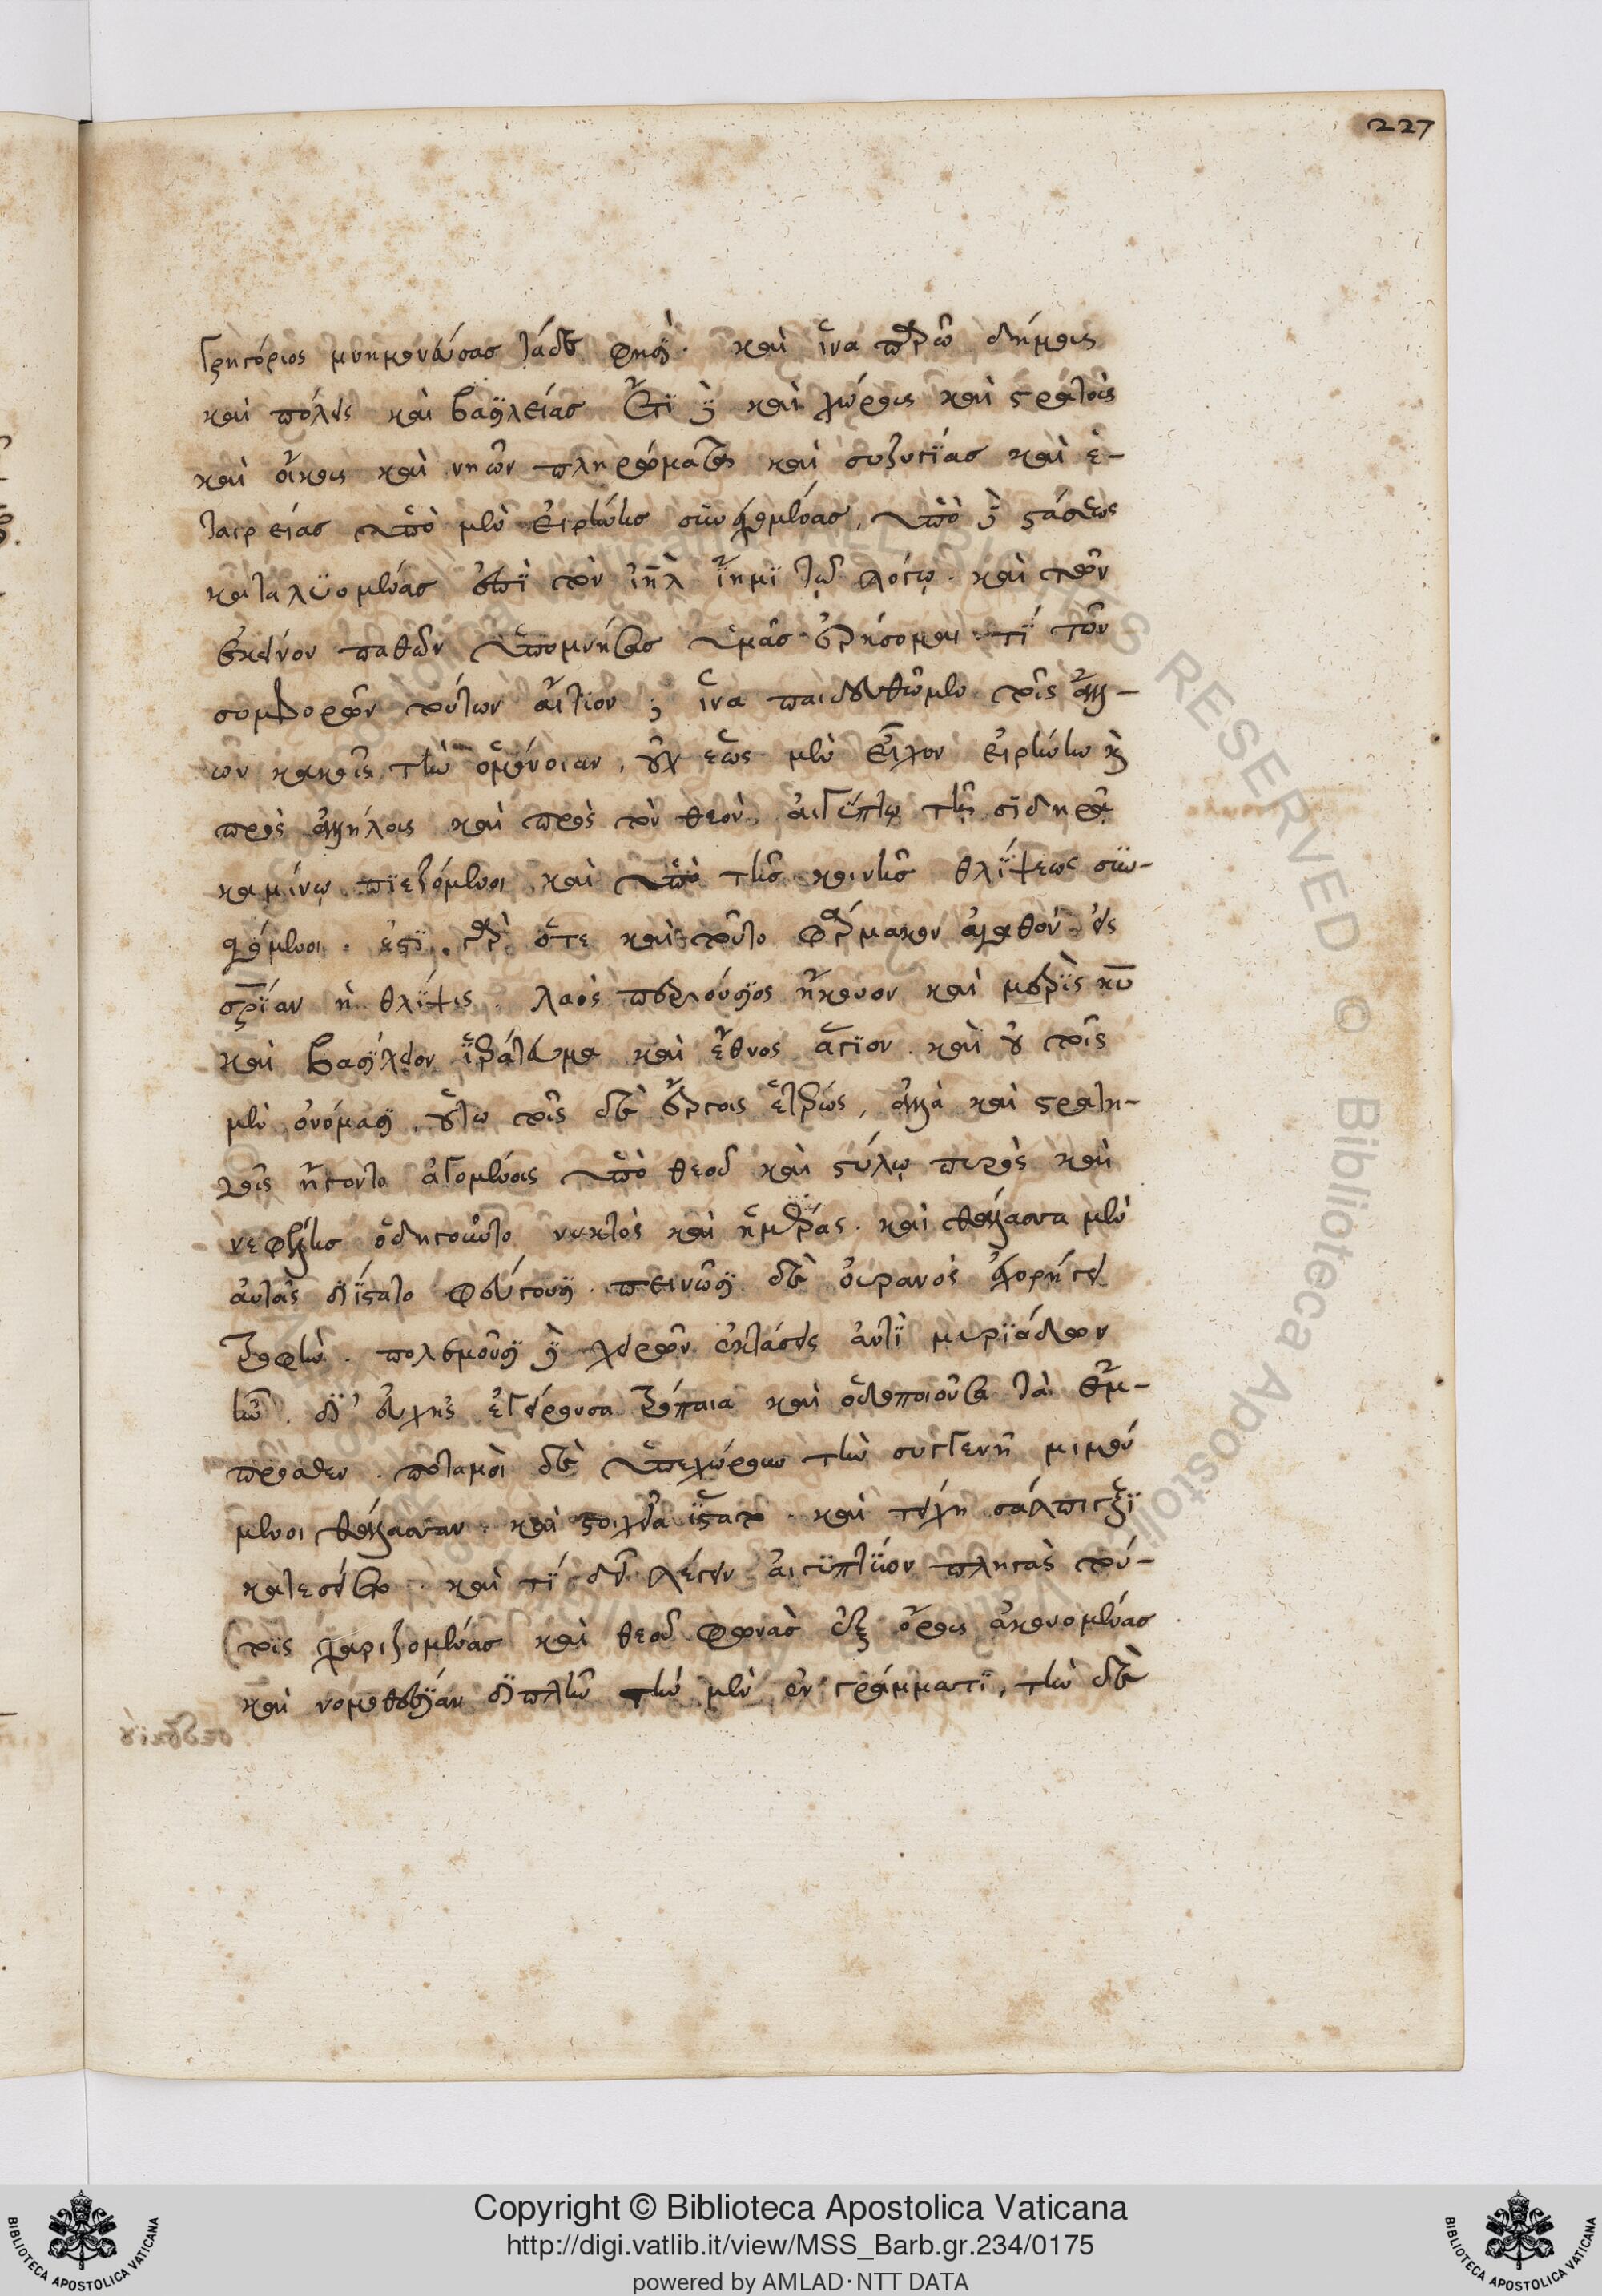 227
Γρηγόριος μνημονεύσας τάδε φησί· καὶ ἵνα παρῶ δήμους
καὶ πόλεις καὶ βασιλείας ἔτι δὲ καὶ χώρους καὶ στρατοὺς
καὶ οἴκους καὶ νηῶν πληρώματα καὶ συζυγίας καὶ ἑ-
ταιρείας ὑπὸ μὲν εἰρήνης συνεχομένας, ὑπὸ δὲ στάσεως
καταλυομένας ἐπὶ τὸν ἰηλ εἶμι τῷ λόγῳ· καὶ τῶν
ἐκείνων παθῶν ὑπομνήσας ὑμᾶς
συμφορῶν τούτων αἴτιον; ἵνα παιδευθῶμεν τοῖς ἀλλ-
ων κακοῖς τὴν ὁμόνοιαν, οὐχ ἕως μὲν εἶχον εἰρήνην καὶ
πρὸς ἀλλήλους καὶ πρὸς τὸν θεὸν, αἰγύπτῳ τῇ σιδηρᾷ
καμίνῳ πιεζόμενοι, καὶ ὑπὸ τῆς κοινῆς θλίψεως συν-
αγόμενοι. ἐστὶ γὰρ ὅτε καὶ τοῦτο φάρμακον ἀγαθὸν εἰς
σρίαν ἡ θλίψις. λαὸς περιούσιος ἤκουον καὶ μερὶς κυ
καὶ βασίλειον ἱεράτευμα καὶ ἔθνος ἅγιον. καὶ οὐ τοῖς
μὲν ὀνόμασιν οὕτω τοῖς δὲ ἔργοις ἑτέρως, ἀλλὰ καὶ στρατη-
γοῖς ἤγοντο ἀγομένοις ὑπὸ θεοῦ καὶ στύλῳ πυρὸς καὶ
νεφέλης ὁδηγοῦντο νυκτὸς καὶ ἡμέρας. καὶ θάλασσα μὲν
αὐτοῖς διίστατο φεύγουσι. πεινῶσι δὲ οὐρανὸς ἐχορήγει
τροφήν. πολεμοῦσι δὲ χειρῶν ἐκτάσεις ἀντὶ μυριάδων
ἦν. δι' εὐχῆς ἐγείρουσα τρόπαια καὶ ὁδοποιοῦσα τὰ ἔμ-
προσθεν. ποταμοὶ δὲ ὑπεχώρουν τὴν συγγενῆ μιμού
μενοι θάλασσαν. καὶ στοιχεῖα ἵστατο. καὶ τείχη σάλπιγξι
κατεσείετο. καὶ τί δεῖ λέγειν αἰγυπτίων πληγὰς τού-
τοις χαριζομένας καὶ θεοῦ φωνὰς ἐξ ὄρους ἀκουομένας
καὶ νομοθεσίαν διπλῆν τὴν μὲν ἐν γράμματι, τὴν δὲ
Copyright © Biblioteca Apostolica Vaticana
http://digi.vatlib.it/view/MSS_Barb.gr.234/0175
powered by AMLAD·NTT DATA